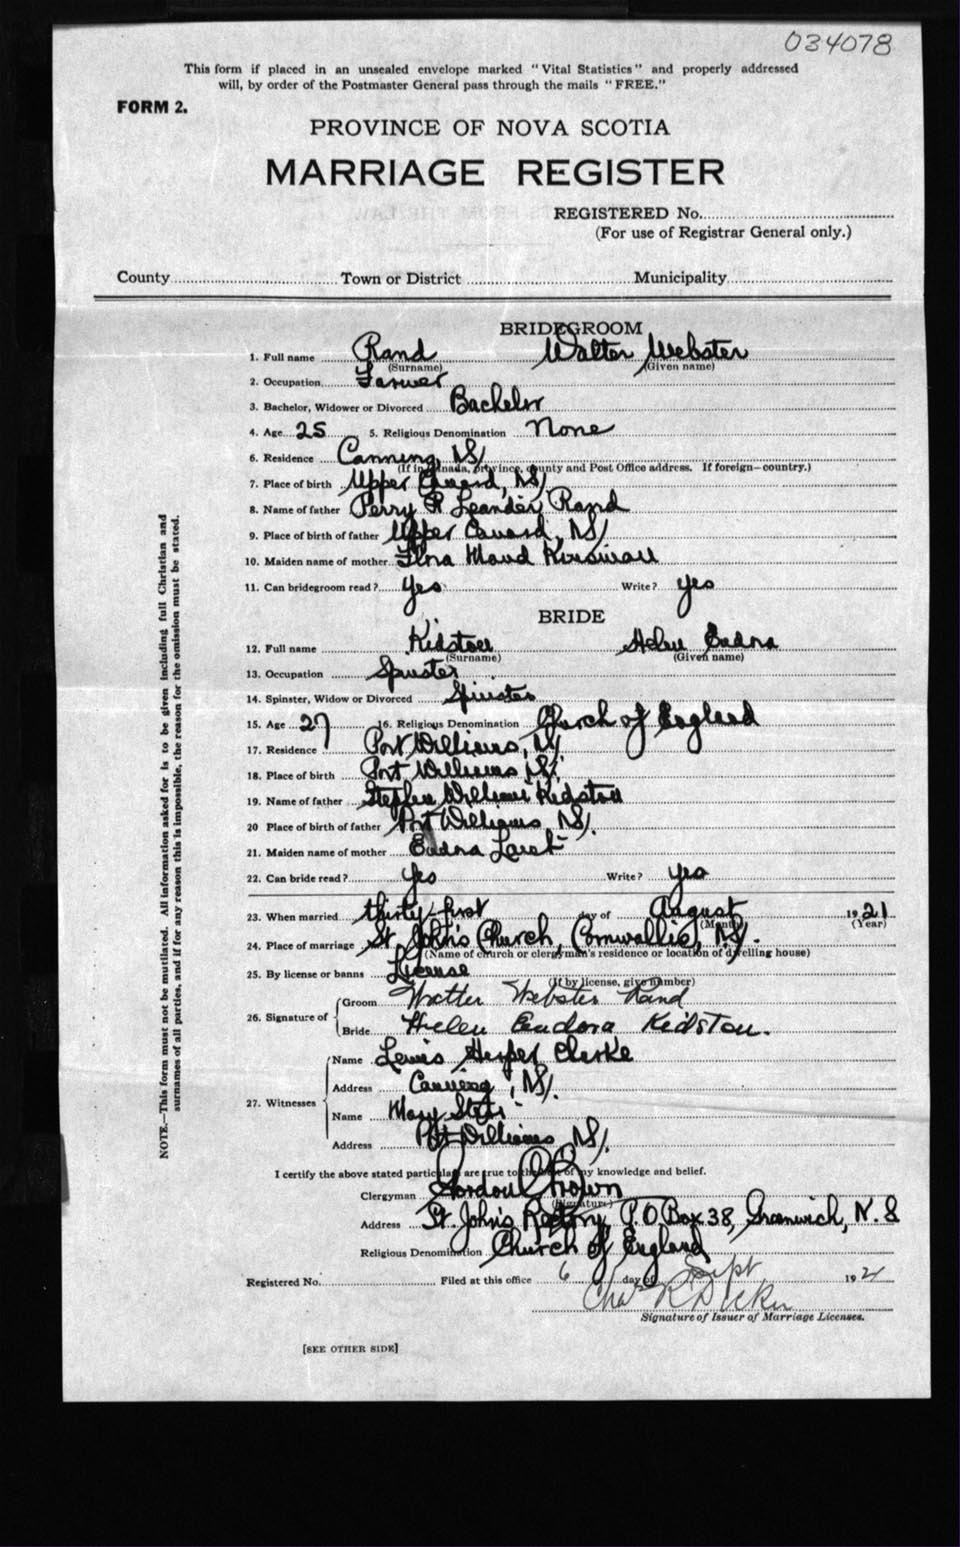 034078
This form if placed in an unsealed envelope marked "Vital Statistics" and properly addressed
will, by order of the Postmaster General pass through the mails "FREE."
FORM 2.
PROVINCE OF NOVA SCOTIA
MARRIAGE REGISTER
REGISTERED No.
(For use of Registrar General only.)
County Town or District Municipality
BRIDEGROOM
1. Full name Rand Walter Webster
(Surname) (Given name)
2. Occupation Farmer
3. Bachelor, Widower or Divorced Bachelor
4. Age 25 5. Religious Denomination None
6. Residence Canning, NS/
(If in Canada, province, county and Post Office address. If foreign—country.)
7. Place of birth Upper Canard, NS/
8. Name of father Perry R Leander Rand
9. Place of birth of father Upper Canard, NS/
10. Maiden name of mother Flora Maud
11. Can bridegroom read? Yes Write? yes
BRIDE
12. Full name Kidston Helen Eudora
(Surname) (Given name)
13. Occupation Spinster
14. Spinster, Widow or Divorced Spinster
15. Age 27 16. Religious Denomination Church of England
17. Residence Port Williams, NS/
18. Place of birth Port Williams NS/
19. Name of father Stephen William Kidston
20 Place of birth of father Port Williams, NS/
21. Maiden name of mother Eudora
22. Can bride read? Yes Write? yes
23. When married thirty-first day of August 1921
(Month) (Year)
24. Place of marriage St John's Church, Cornwallis, NS.
(Name of church or clergyman's residence or location of dwelling house)
25. By license or banns License
(If by license, give number)
26. Signature of Groom Walter Webster Rand
Bride Helen Eudora Kidston.
27. Witnesses Name Lewis Harper Clarke
Address Canning, NS/.
Name Mary Starr
Address Port Williams, NS/.
I certify the above stated particulars are true to the best of my knowledge and belief.
Clergyman Gordon Brown
(Signature)
Address St. John's Rectory P.O Box 38, Greenwich, N.S
Religious Denomination Church of England
Registered No. Filed at this office 6 day of Sept 1921
Chas R
Signature of Issuer of Marriage Licenses.
[SEE OTHER SIDE]
NOTE.—This form must not be mutilated. All information asked for is to be given including full Christian and
surnames of all parties, and if for any reason this is impossible, the reason for the omission must be stated.